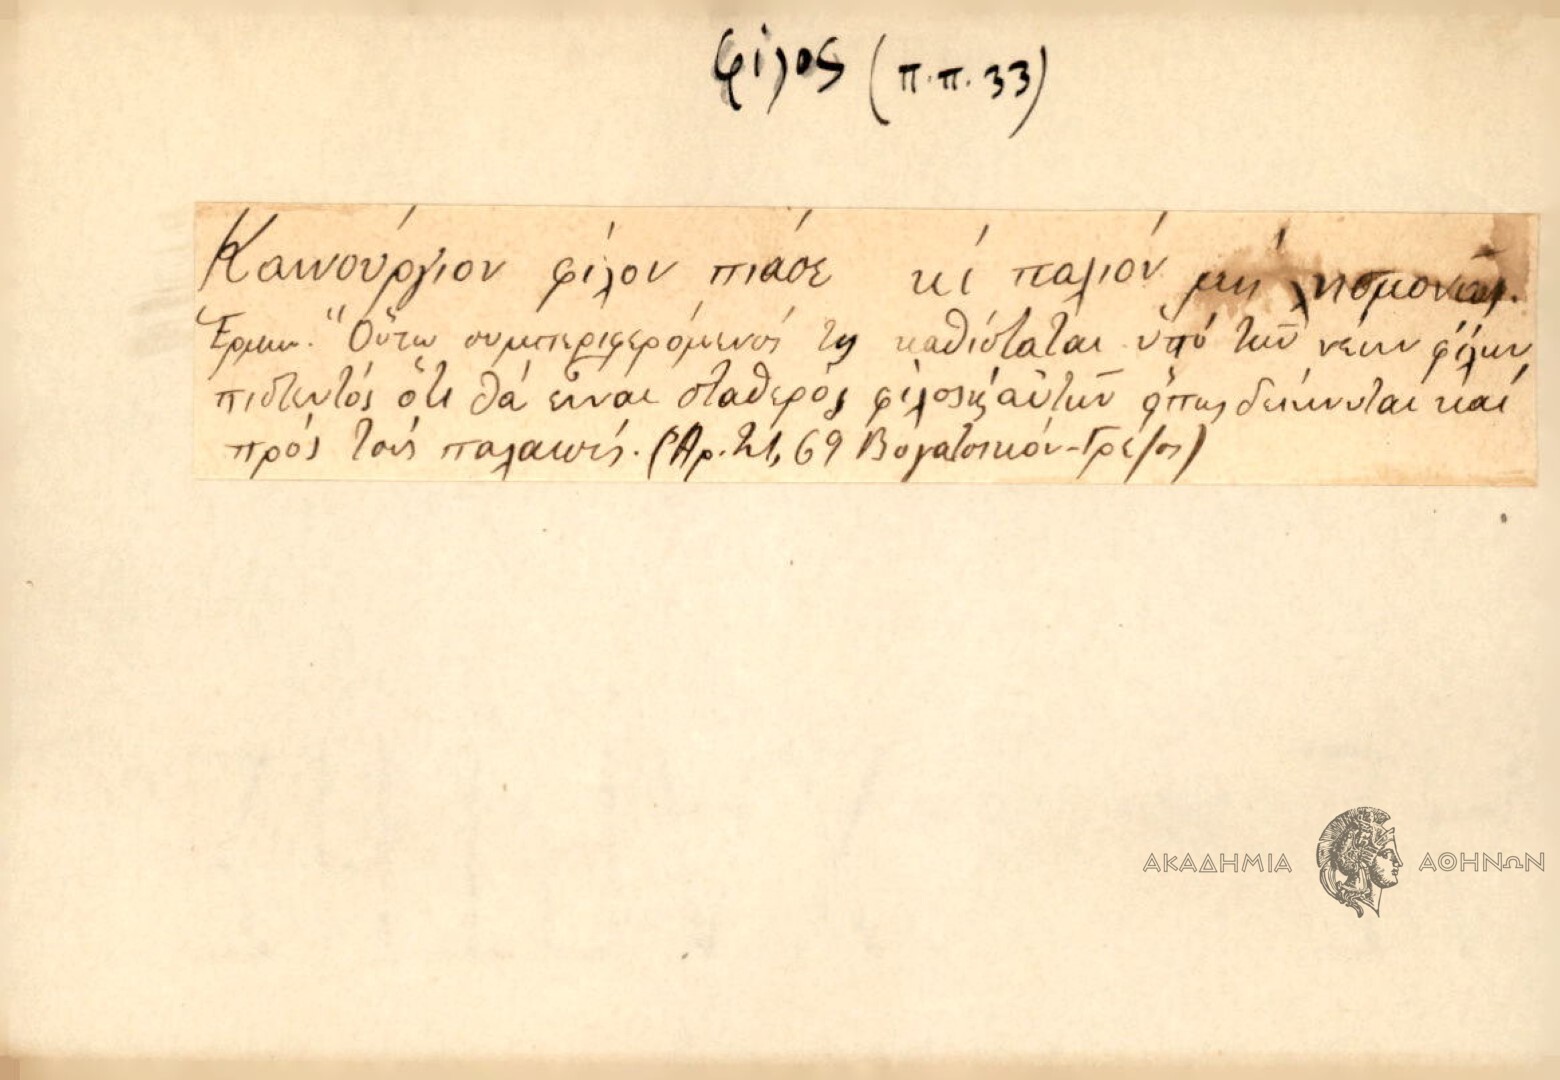 φίλος (π.π. 33)
Καινούργιον φίλον πιάσε κί παλιόν μή λησμονᾷς.
Ἑρμην. "Οὕτω συμπεριφερόμενός τις καθίσταται ὑπό τῶν νέων φίλων
πιστευτός ὅτι θά εἶναι σταθερός φίλος αὐτῶν ὅπως δείκνυται καί
πρός τούς παλαιούς. (Ἀρ. 69 Βογατσικόν-
ΑΚΑΔΗΜΙΑ ΑΘΗΝΩΝ